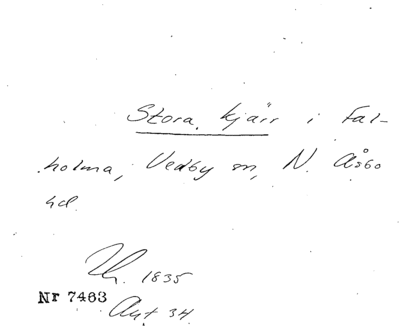 Stora kjärr i Fal-
holma, Vedby sn, N. Åsbo
hd.
Th. 1835
Nr 7463
Avt 34